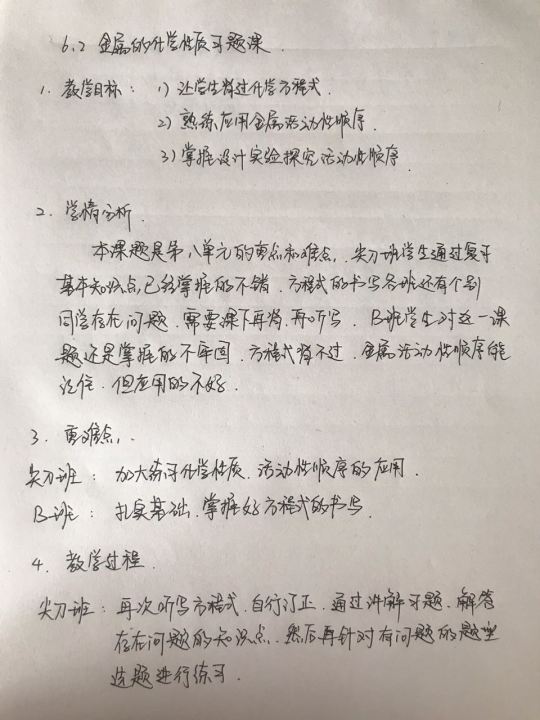 6.2 金属的化学性质习题课.
1. 教学目标: 1) 让学生背过化学方程式.
2) 熟练应用金属活动性顺序.
3) 掌握设计实验探究活动性顺序.
2. 学情分析.
本课题是第八单元的重点和难点, 尖刀班学生通过复习
基本知识点, 已经掌握的不错. 方程式的书写各班还有个别
同学存在问题. 需要课下再背, 再听写. B班学生对这一课
题还是掌握的不牢固. 方程式背不过. 金属活动性顺序能
记住. 但应用的不好.
3. 重难点.
尖刀班: 加大练习化学性质. 活动性顺序的应用.
B班: 扎实基础. 掌握好方程式的书写.
4. 教学过程.
尖刀班: 再次听写方程式. 自行订正. 通过讲解习题. 解答
存在问题的知识点. 然后再针对有问题的题型
选题进行练习.